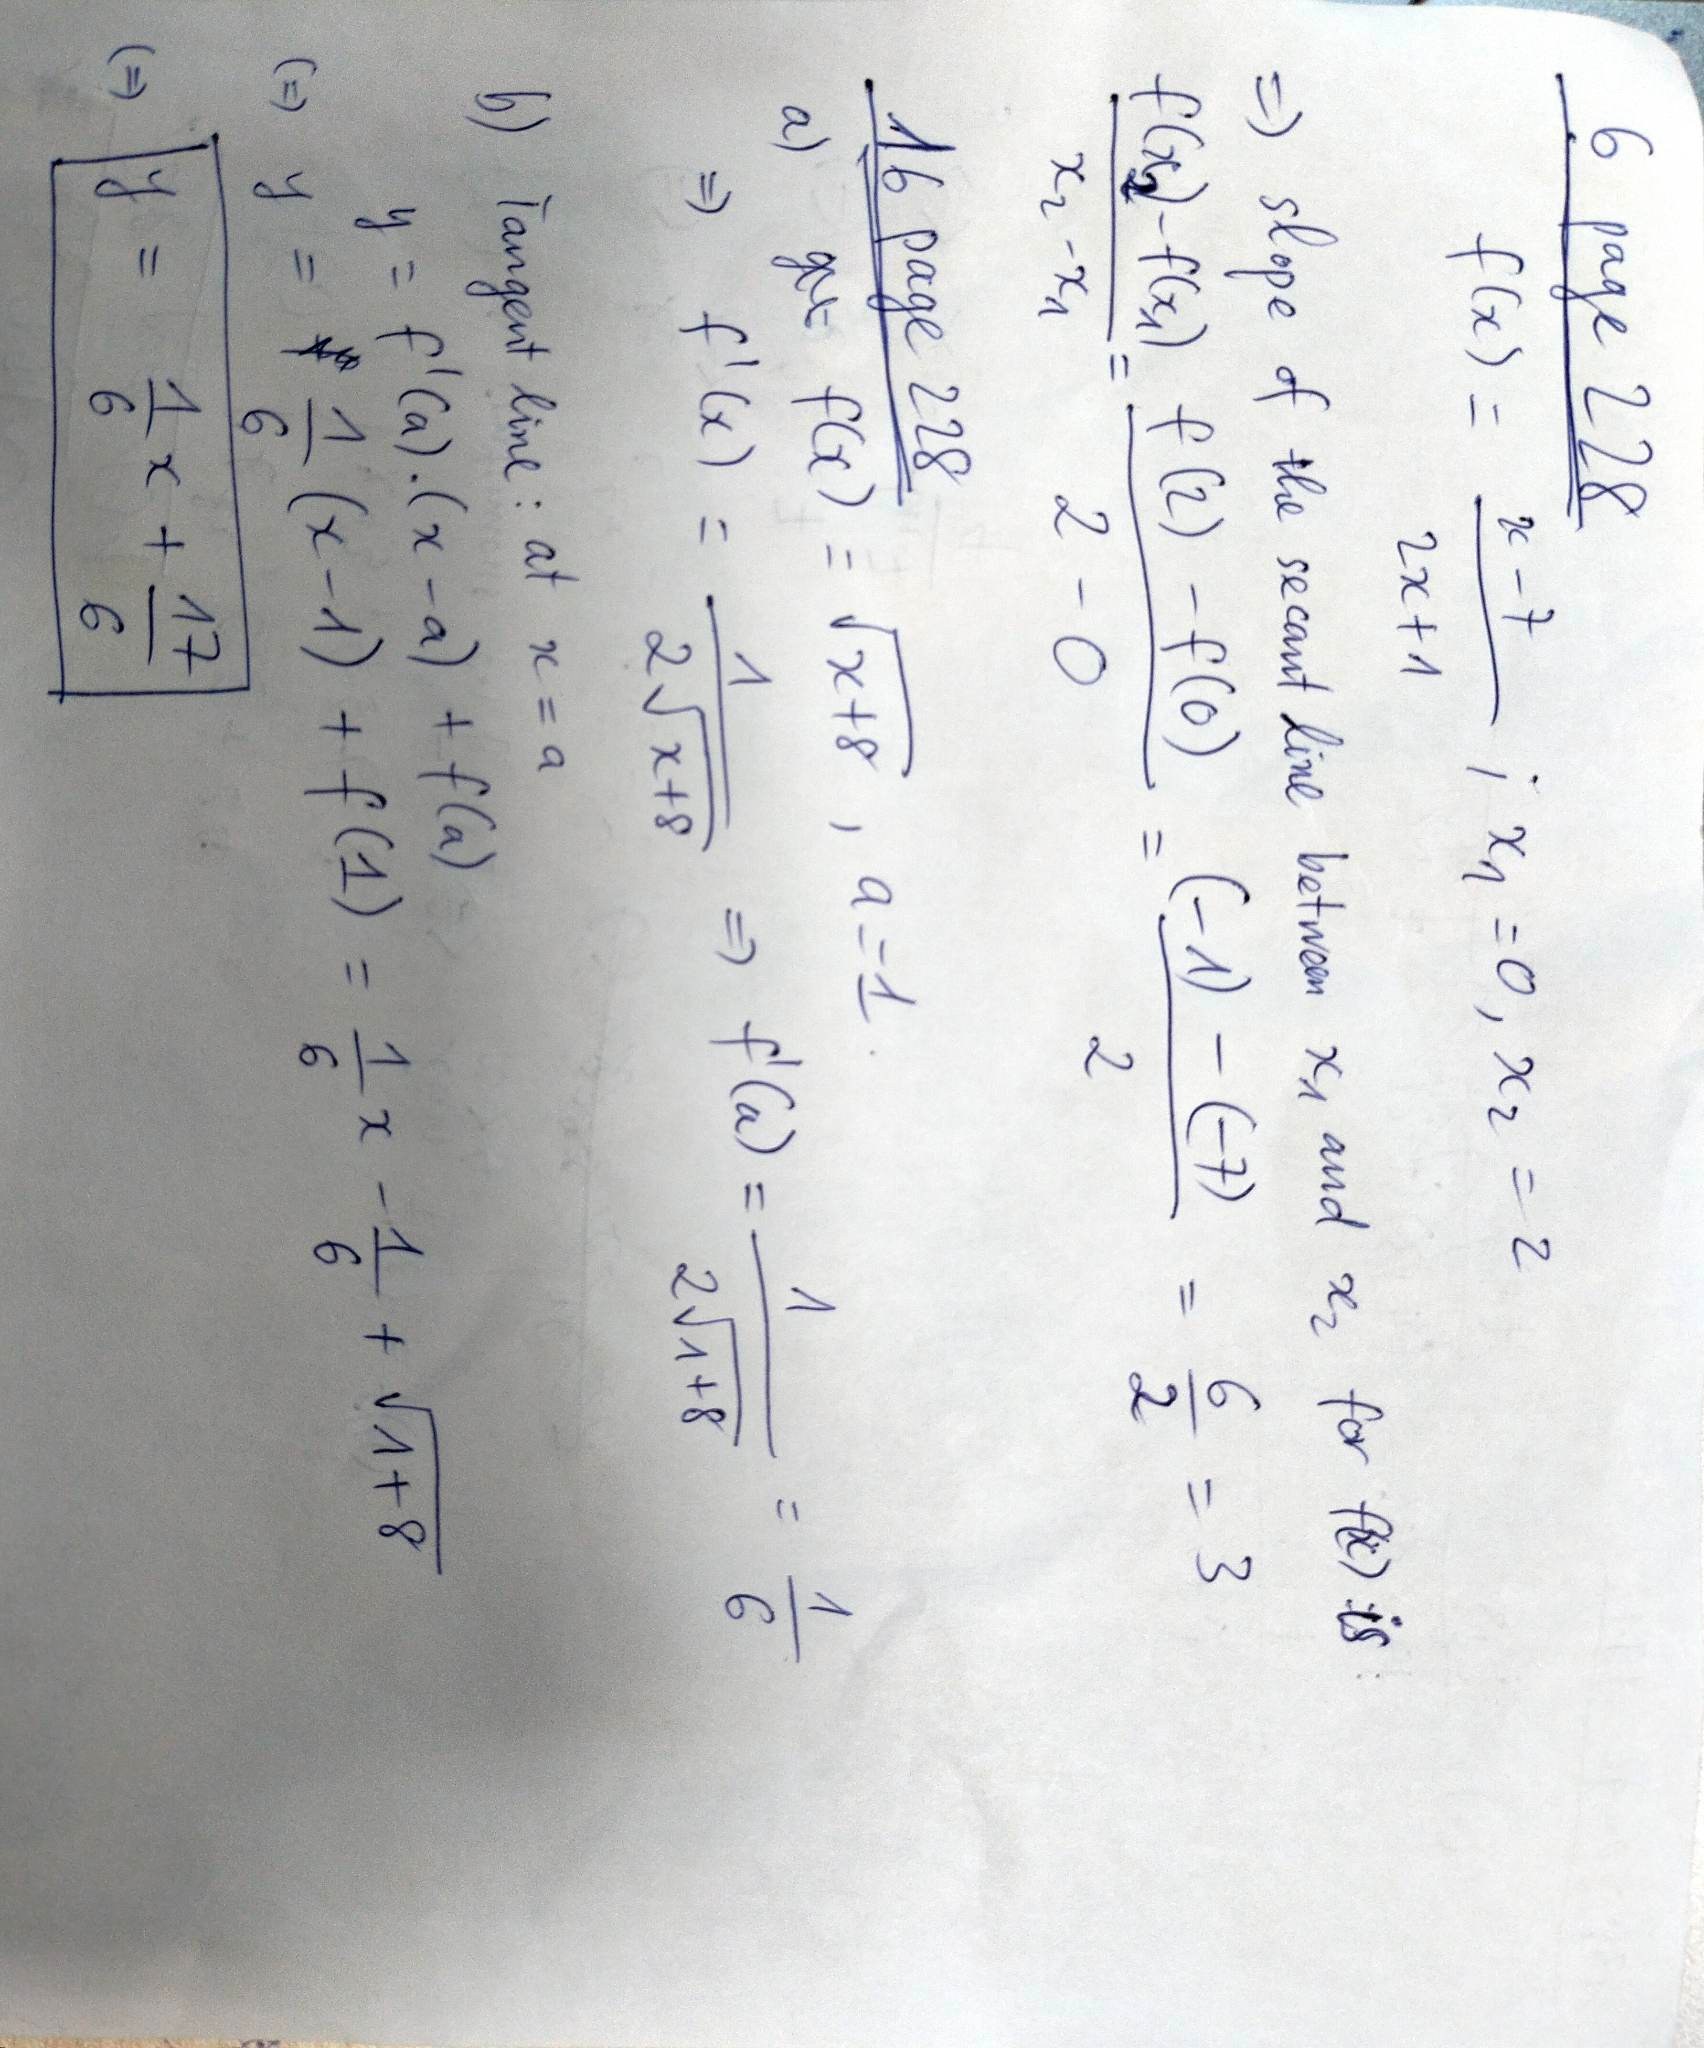 6 page 228
f(x) = (x-7)/(2x+1) ; x₁ = 0, x₂ = 2
=> slope of the secant line between x₁ and x₂ for f(x) is:
(f(x₂)-f(x₁))/(x₂-x₁) = (f(2) - f(0))/(2 - 0) = ((-1) - (-7))/2 = 6/2 = 3
16 page 228
a) f(x) = √(x+8) , a = 1.
=> f'(x) = 1/(2√(x+8)) => f'(a) = 1/(2√(1+8)) = 1/6
b) Tangent line: at x = a
y = f'(a).(x-a) + f(a)
(=) y = 1/6 (x-1) + f(1) = 1/6 x - 1/6 + √(1+8)
(=) y = 1/6 x + 17/6